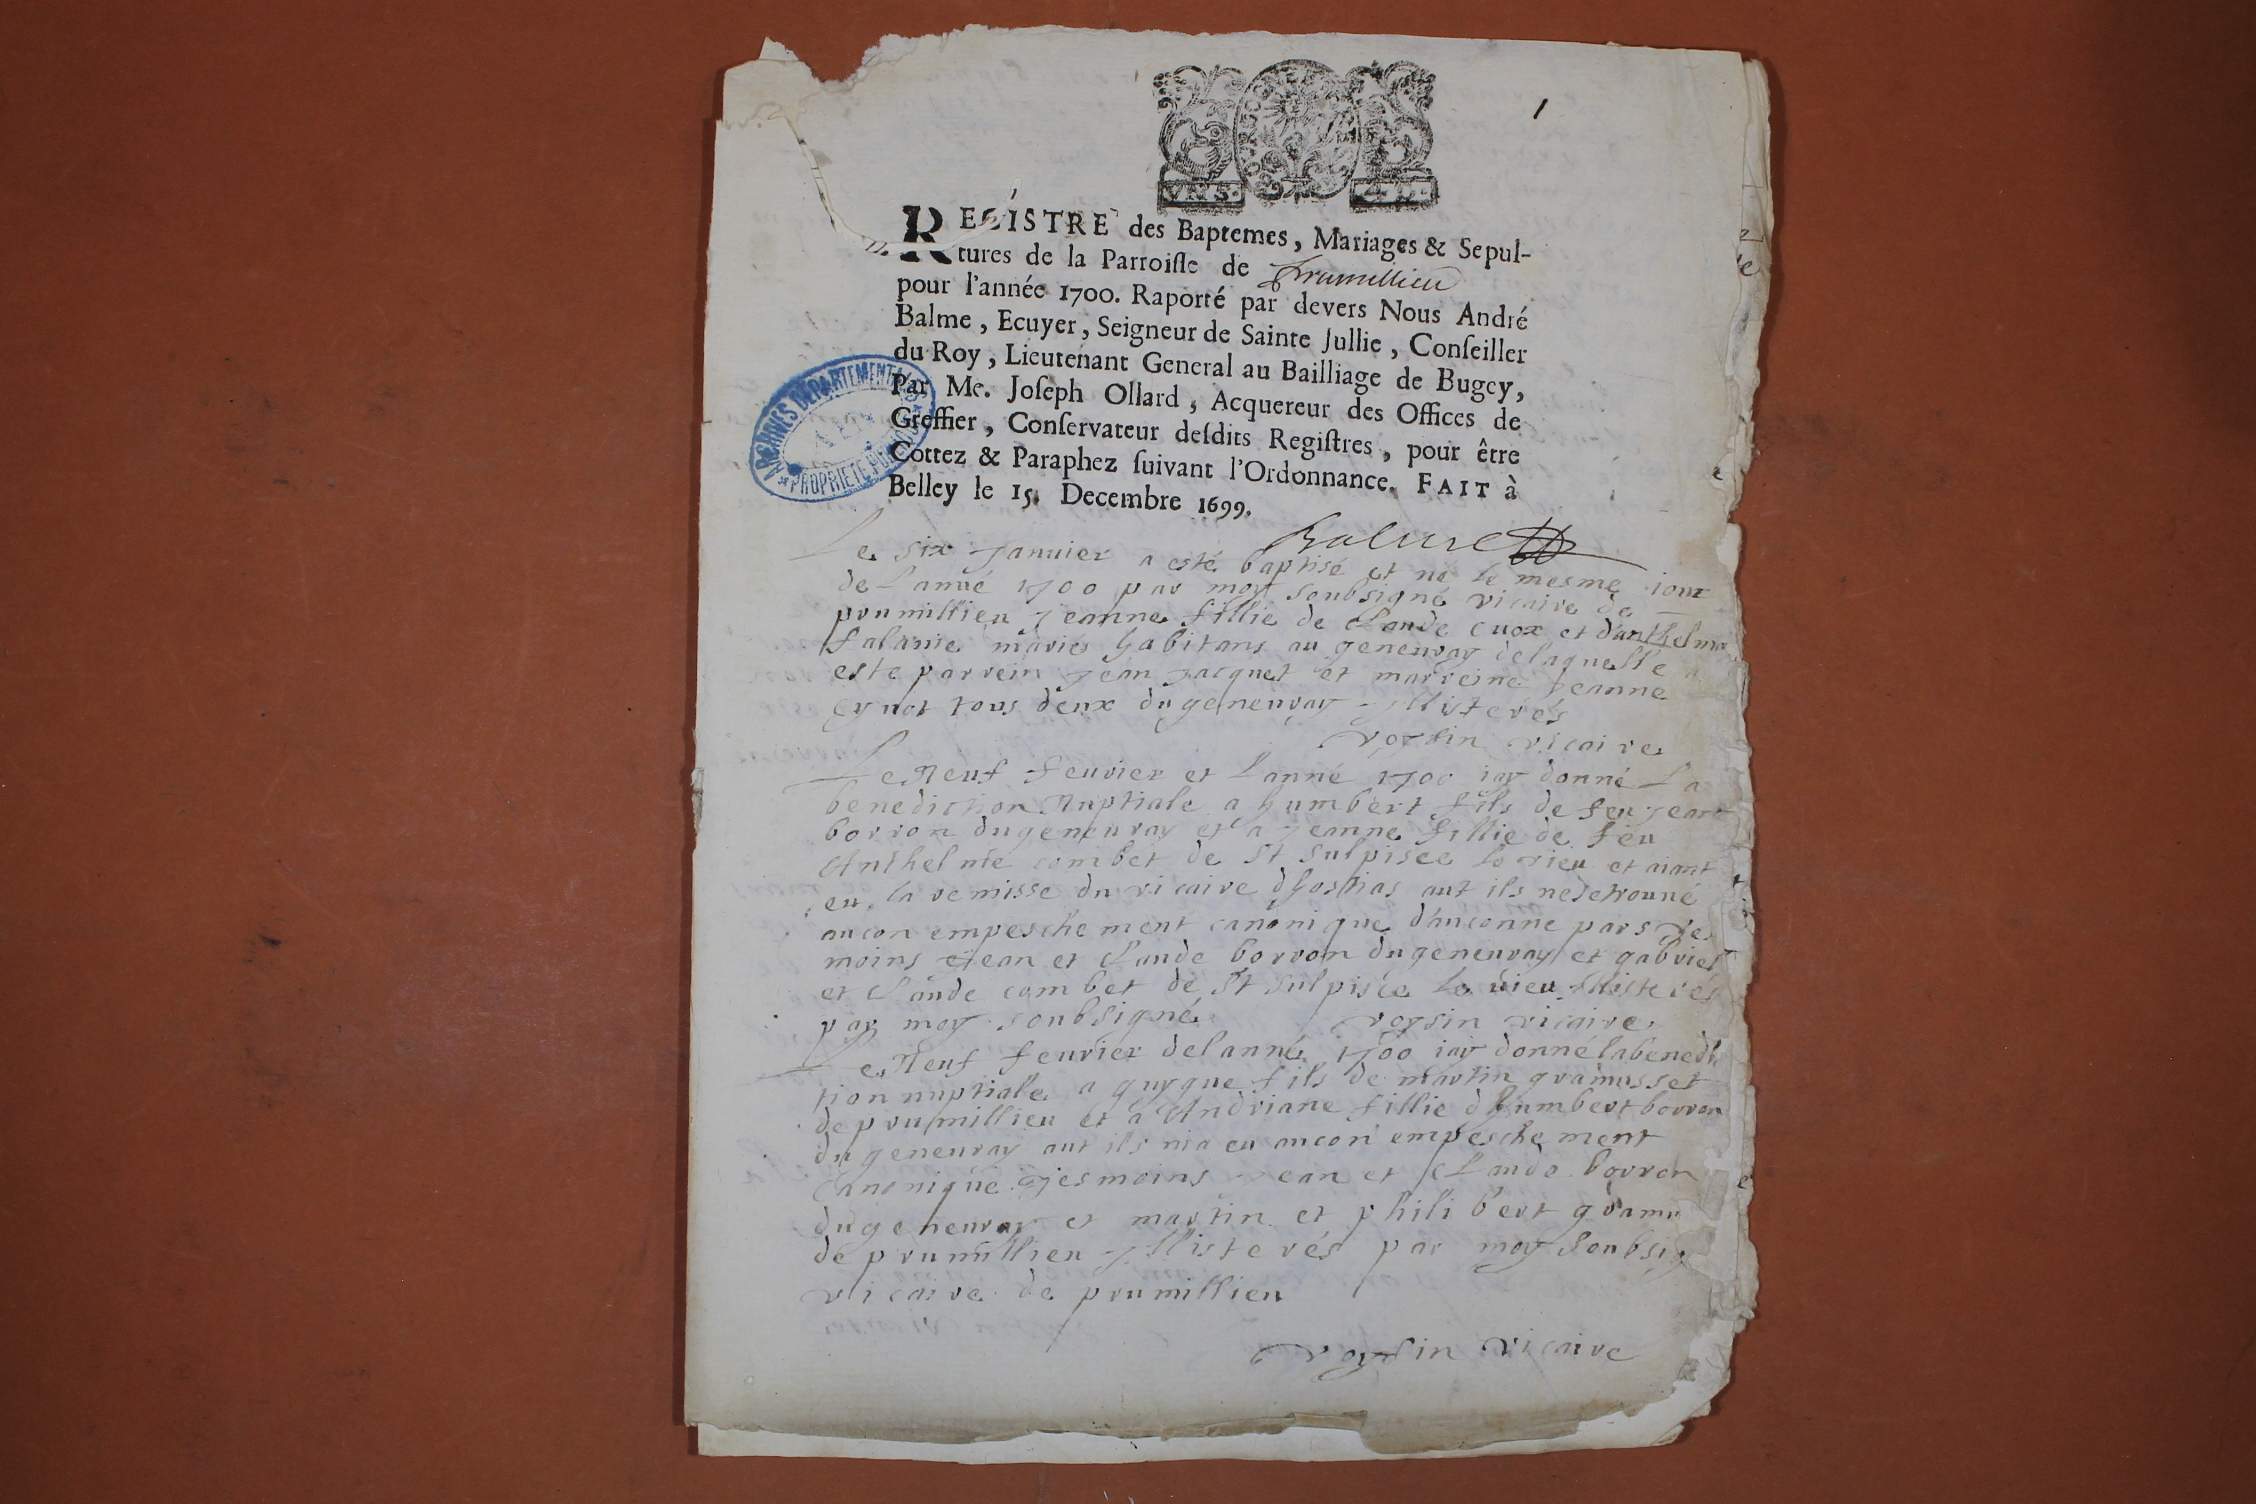 1
REGISTRE des Baptemes, Mariages & Sepul-
tures de la Parroisse de Prumillieu
pour l'année 1700. Raporté par devers Nous André
Balme, Ecuyer, Seigneur de Sainte Jullie, Conseiller
du Roy, Lieutenant General au Bailliage de Bugey,
Par Me. Joseph Ollard, Acquereur des Offices de
Greffier, Conservateur desdits Registres, pour être
Cottez & Paraphez suivant l'Ordonnance. FAIT à
Belley le 15. Decembre 1699.
ARCHIVES DÉPARTEMENTALES
AIN
PROPRIÉTÉ PUBLIQUE
Balme
Le six Janvier a esté baptisé et né le mesme iour
de Lanné 1700 par moy soubsigné vicaire de
prumillieu Jeanne fillie de Claude cuox et d'anthelma
falavie mariés habitans au geneuray delaquelle
este parrein Jean Jacquet et marreine Jeanne
tous deux du geneuray
voysin vicaire
Le Neuf feuvrier et Lanné 1700 iay donné La
benediction Nuptiale a humbert fils de feu Jean
borron du geneuray et a Jeanne fillie de feu
Anthelme combet de St Sulpisce le vieu et aiant
eu la remisse du vicaire dhostias aut ils ne se trouné
aucon empeschement canonique d'auconne pars Tes
moins Jean et Claude borron du geneuray et gabriel
et Claude combet de St Sulpisce le vieu
par moy soubsigné voysin vicaire
Le Neuf feuvrier de lanné 1700 iay donné la benedi
tion nuptiale a guygue fils de martin gramusset
de prumillieu et a Andriane fillie dhumbert borron
du geneuray aut ils nia eu aucon empeschement
Canonique Tesmoins Jean et Claude borron
du geneuray et martin et philibert gramu
de prumillieu par moy soubsig
vicaire de prumillieu
voysin vicaire